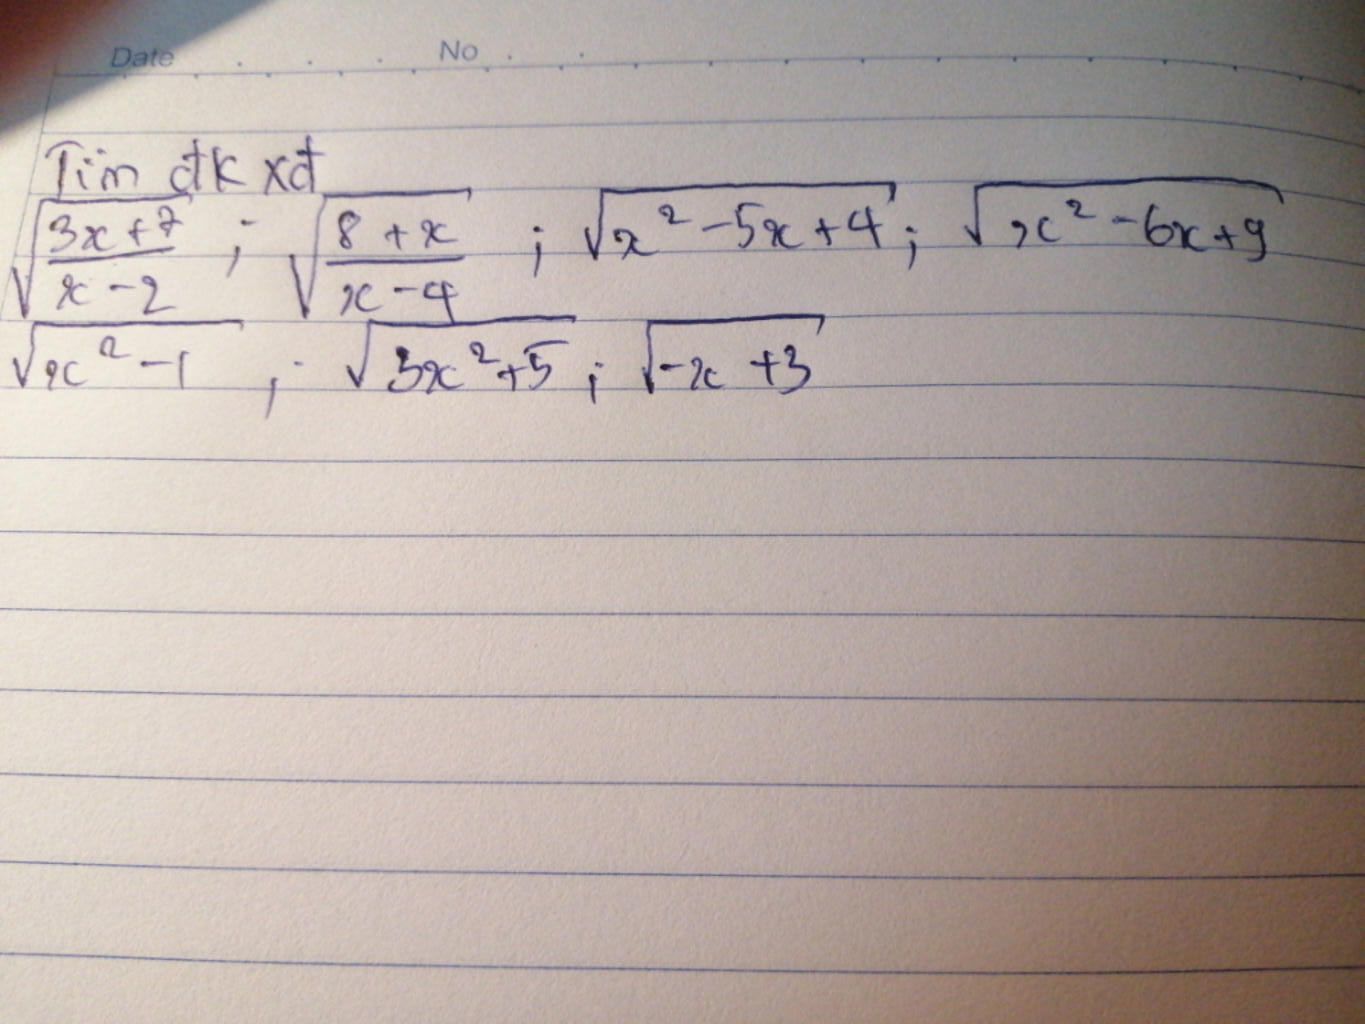 Date No
Tìm đk xđ
√((3x+7)/(x-2)) ; √((8+x)/(x-4)) ; √(x²-5x+4) ; √(x²-6x+9)
√(x²-1) ; √(3x²+5) ; √(-x+3)